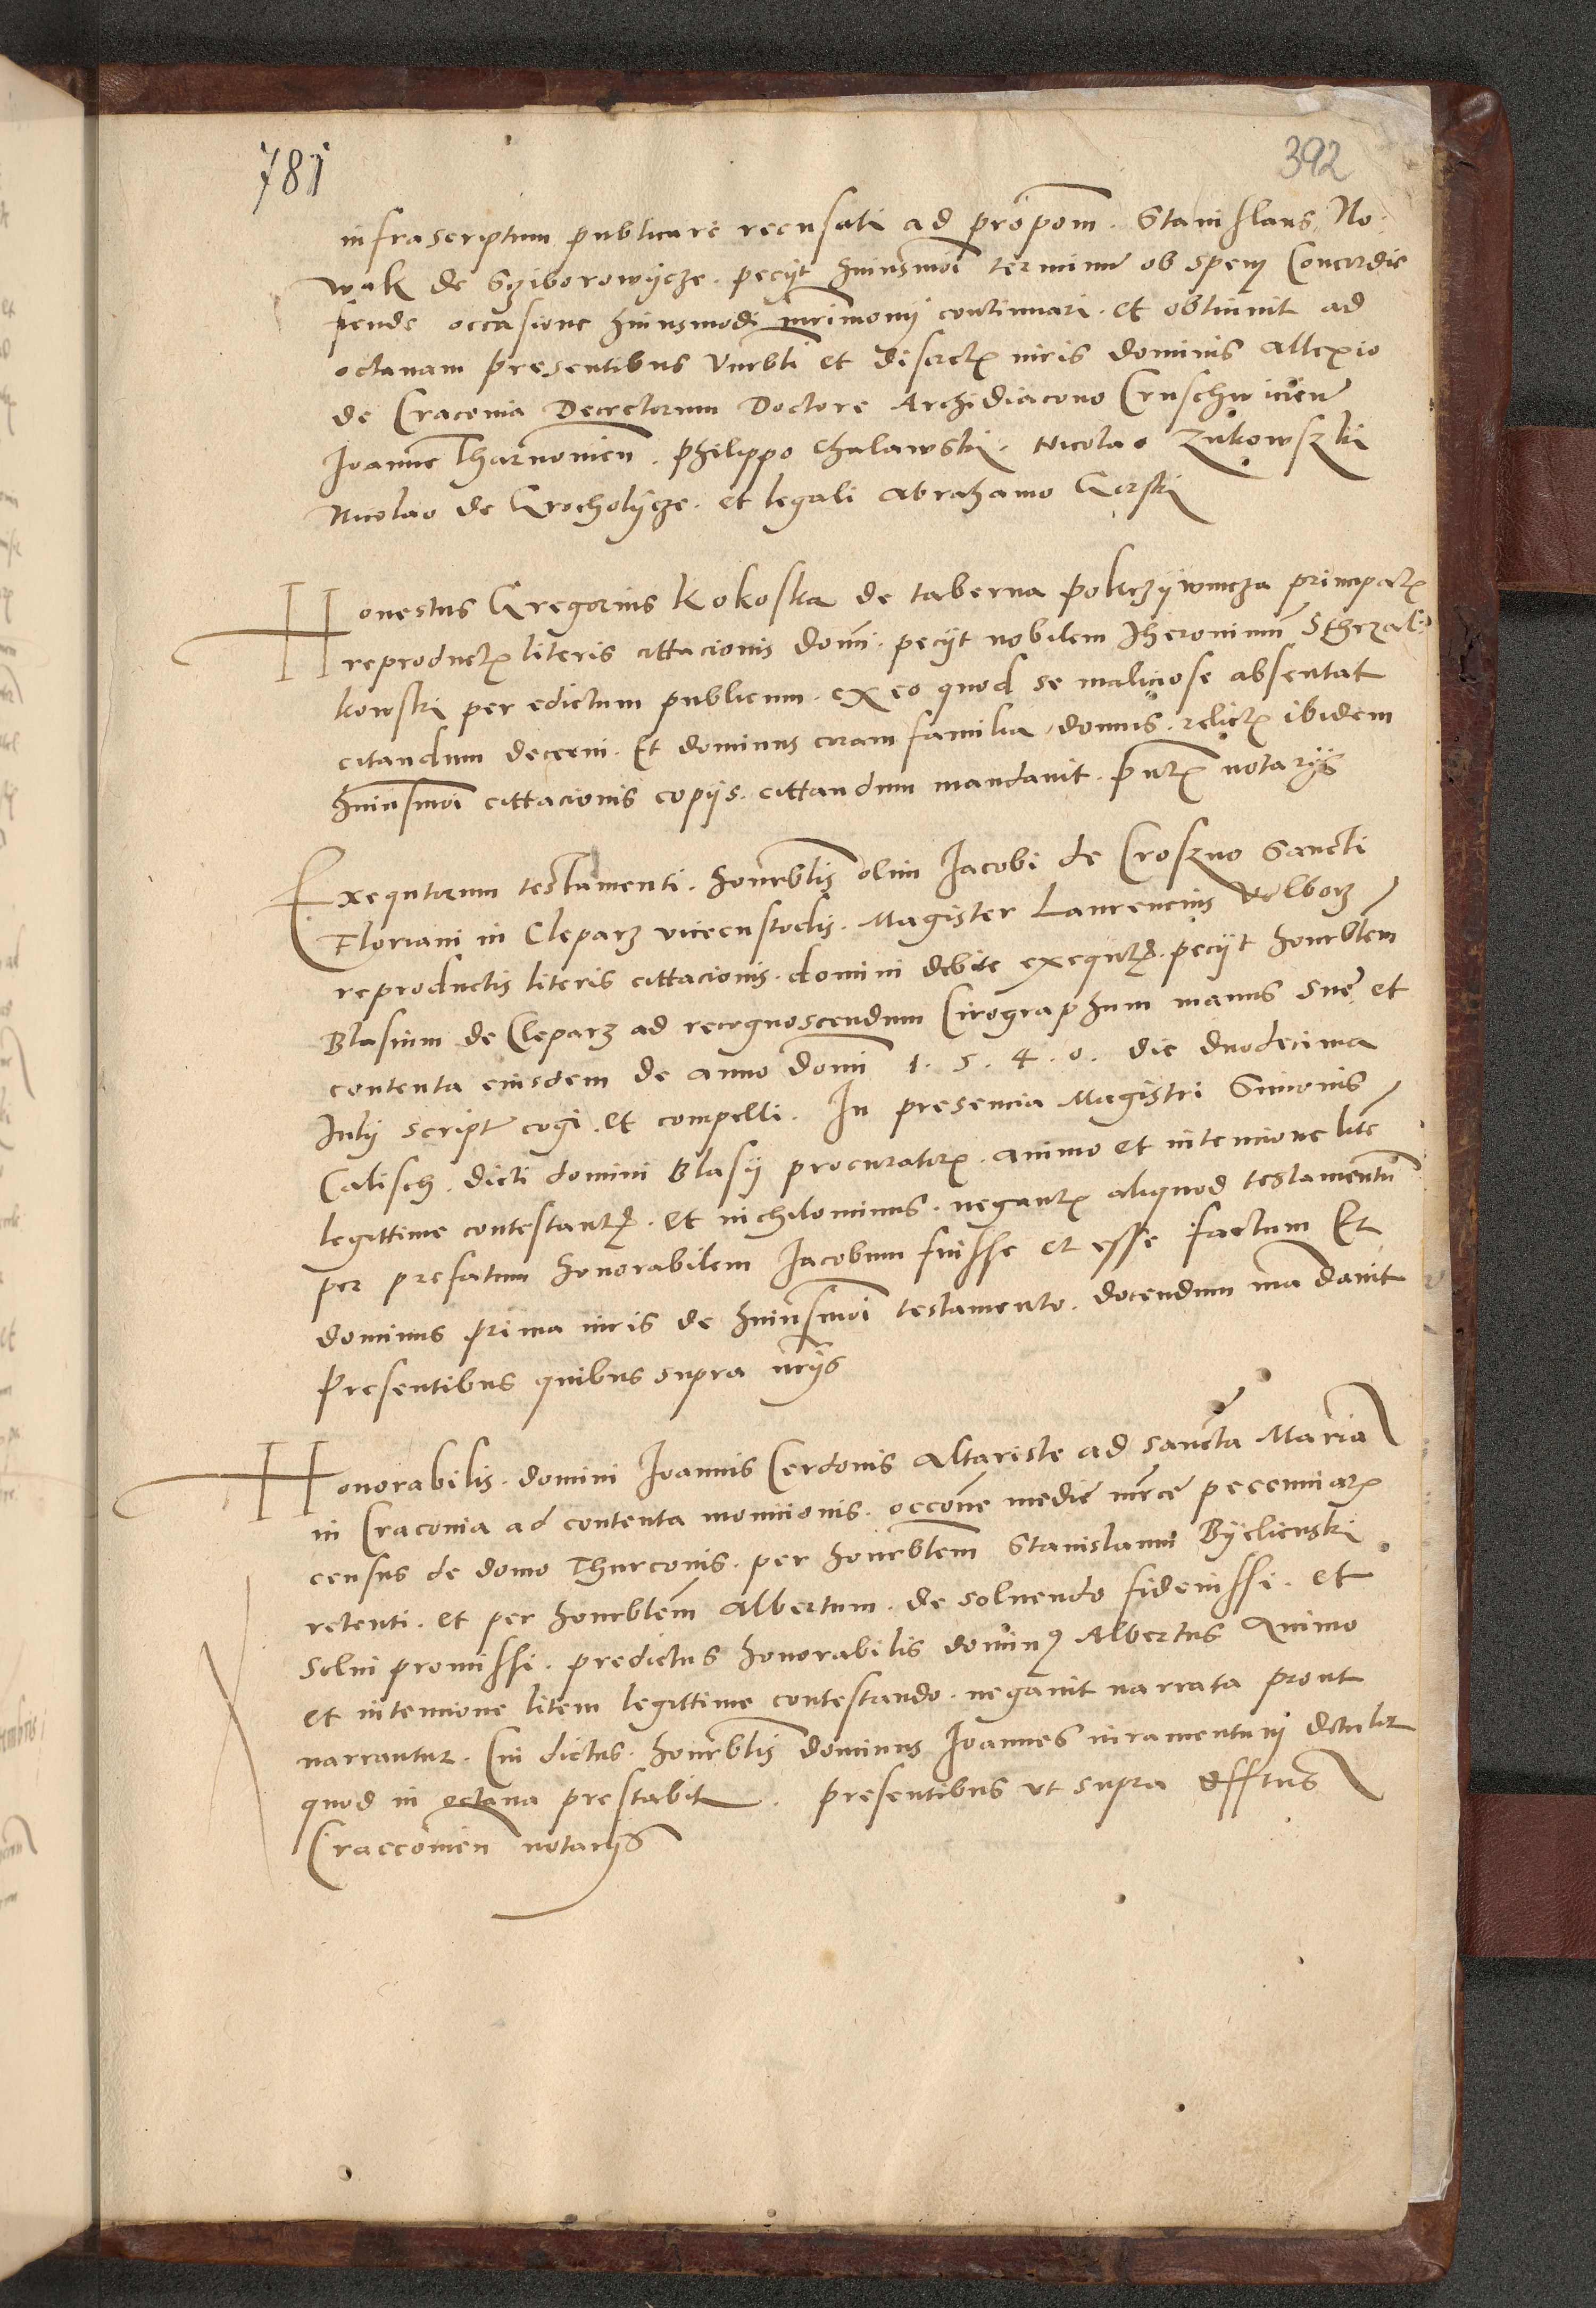 781
392
infrascriptum publicare recusati ad propom. Stanislaus No-
wak de Sziborowycze. peciit huiusmoi terminum ob spem Concordie
fiende occasione huiusmodi mrimonii continuari. et obtinuit ad
octavam presentibus Vnrbli et discretis viris dominis Allexio
de Cracovia Decretorum Doctore Archidiacono Cruschwicien
Joanne Tharnovien. Philippo Chalawski. Nicolao Zukowszki
Nicolao de Grocholycze. et legali Abrahamo Gorski
Honestus Gregorius Kokoska de taberna Pokrzywnycza principalis
reproductis literis cittacionis domi. peciit nobilem Iheronimum
kowski per edictum publicum. ex eo quod se maliciose absentat
citandum decerni. Et dominus coram familia domus. relictis ibidem
huiusmoi cittacionis copiis. cittandum mandavit. pntibus notariis
Exequtorum testamenti. honrblis olim Jacobi de Croszno Sancti
Floriani in Cleparz vicecustodis. Magister Laurencius Wolborz
reproductis literis cittacionis. domini debite exequtis. peciit honrblem
Blasium de Cleparz ad recognoscendum Cirographum manus sue et
contenta eiusdem de anno domi 1. 5. 4. 0. die duodecima
Julii script cogi. et compelli. In presencia Magistri Simonis
Calisch. dicti domini Blasii procuratoris. animo et intencione lite
legittime contestantis. et nichilominus. negantis aliquod testamentu
per prefatum honorabilem Jacobum fuisse et esse factum Et
dominus prima iuris de huiusmoi testamento. docendum mandavit
Presentibus quibus supra nriis
Honorabilis. domini Joannis Cerdonis Altariste ad sancta Maria
in Cracovia ad contenta monicionis. occone medie mrce pecuniarum
census de domo Thurconis. per honrblem Stanislaum Byelienski
retenti. et per honrblem Albertum. de solvendo fideiussi. et
solui promissi. predictus honorabilis dominus Albertus Animo
et intencione litem legittime contestando. negavit narrata prout
narrantur. Cui dictus. honrblis dominus Joannes iuramentum detulit
quod in octava prestabit. presentibus ut supra
Craccovien notariis